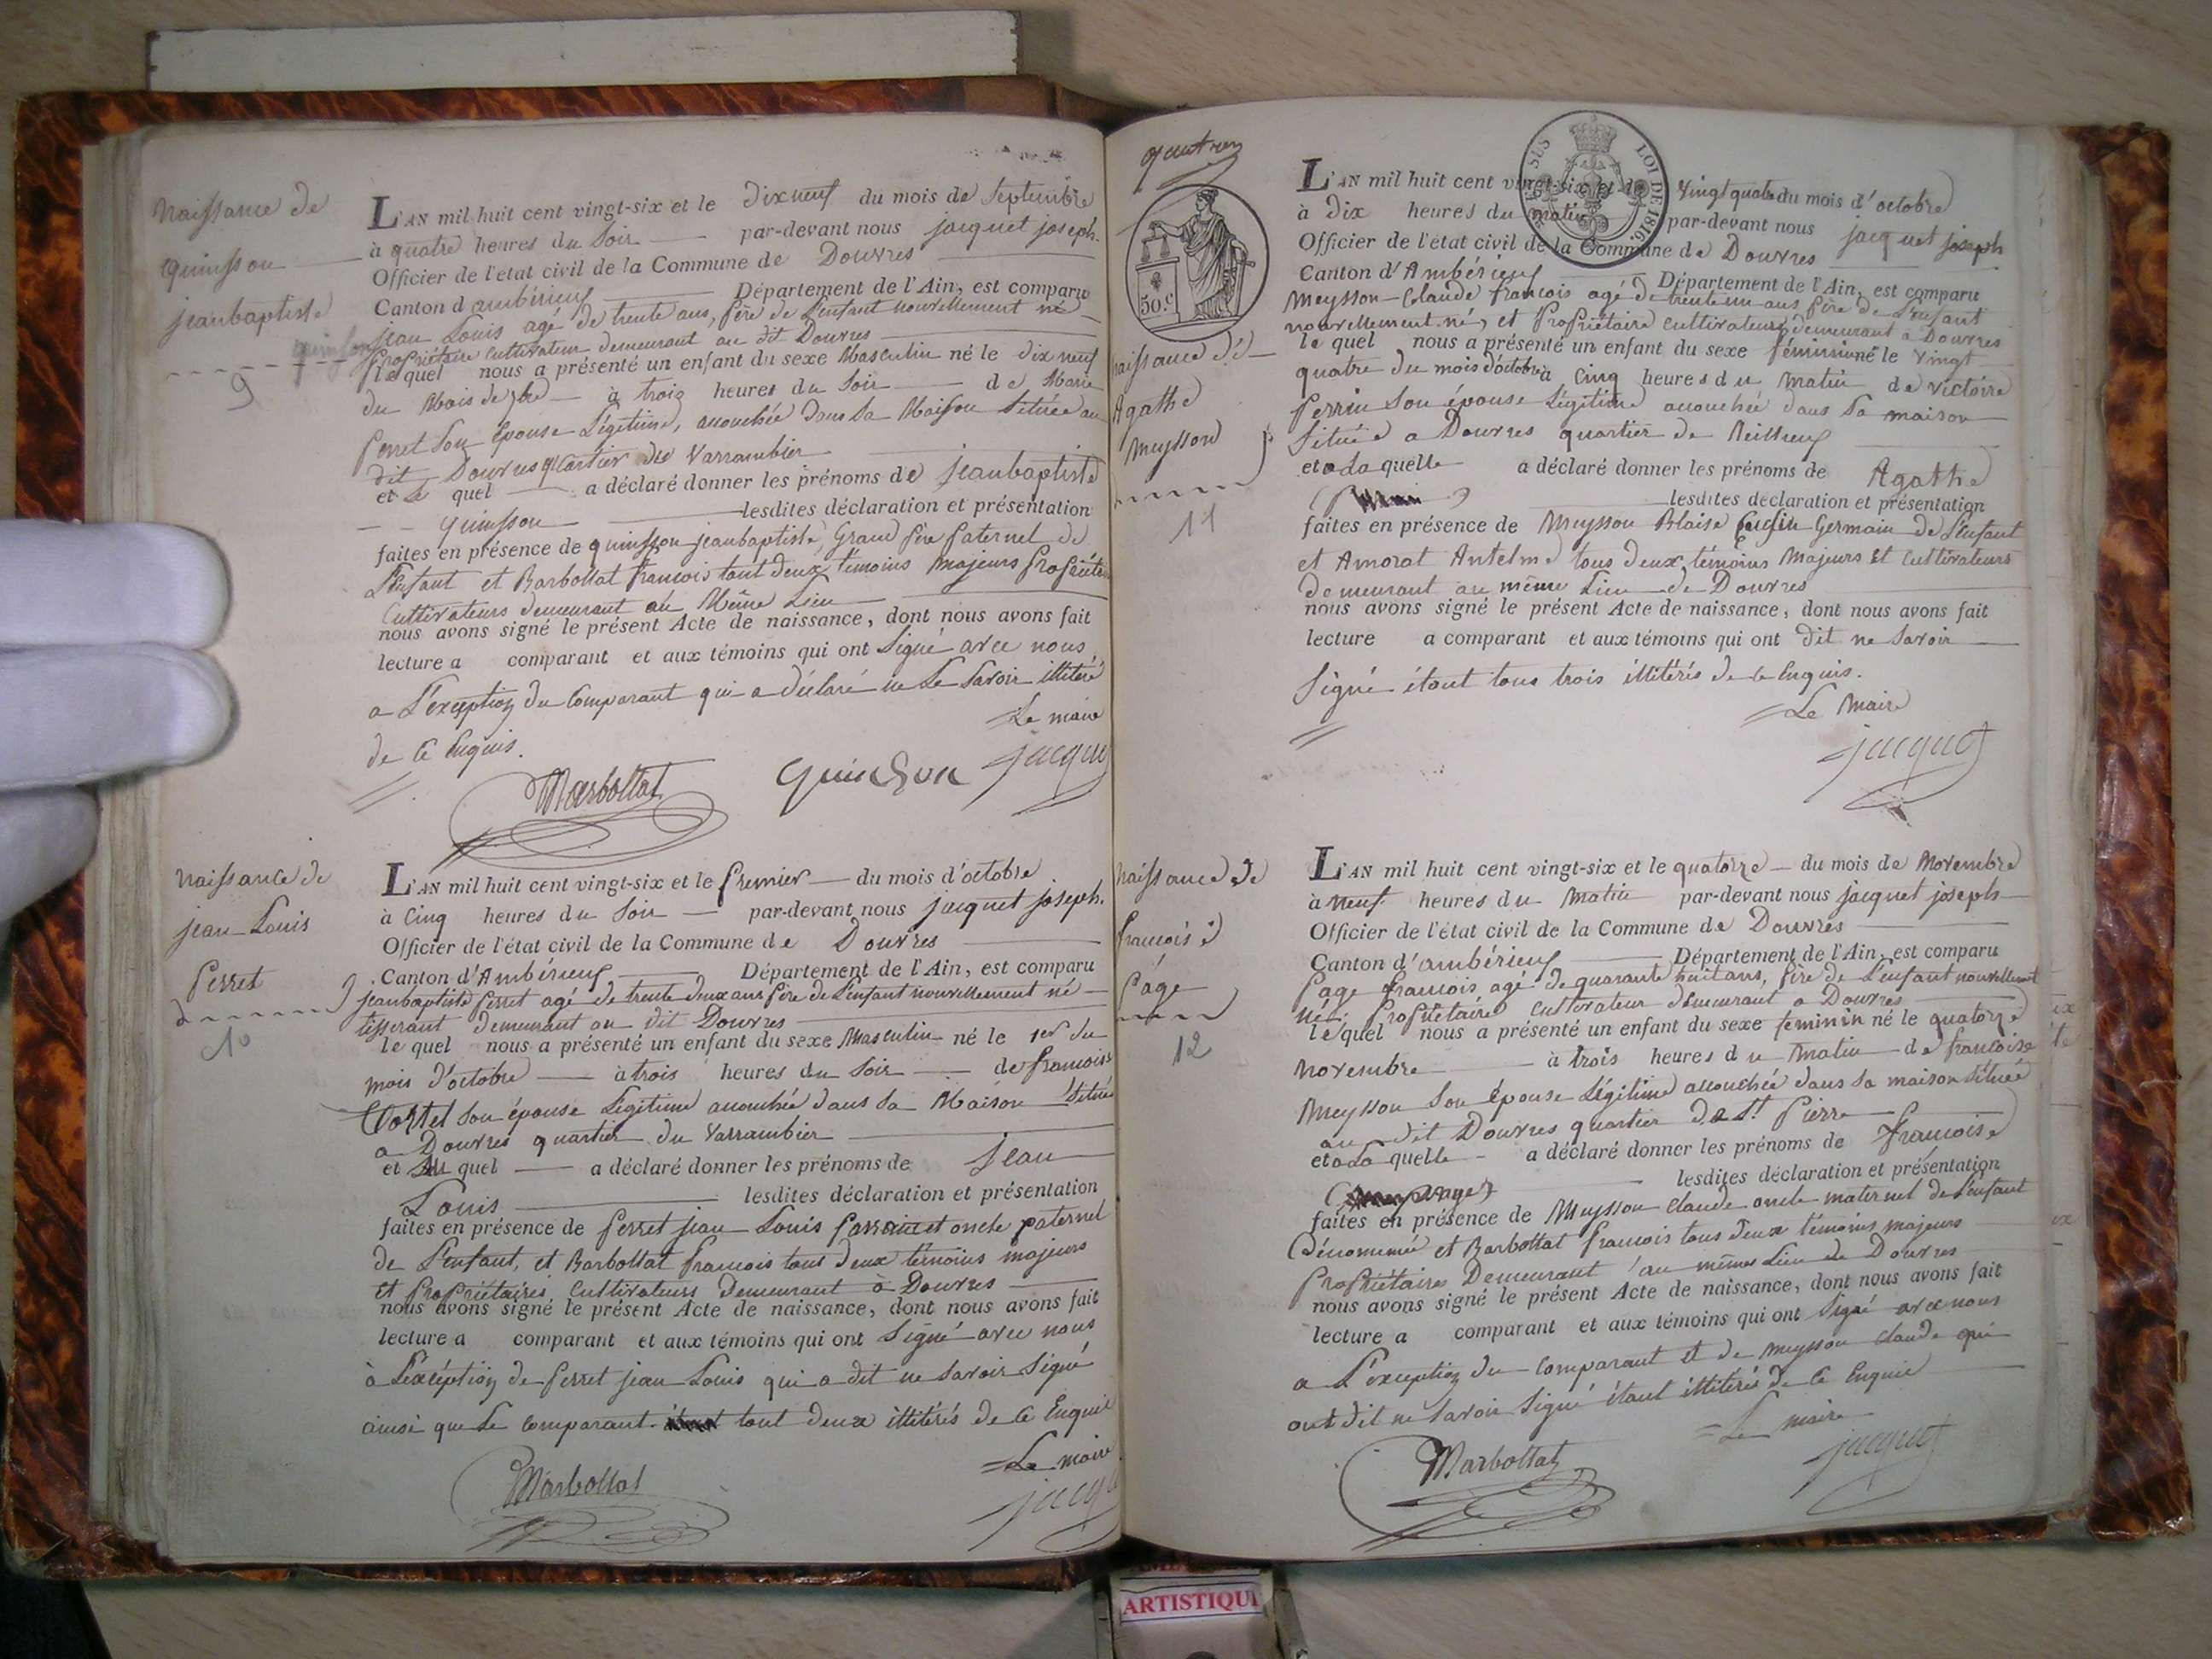 Naissance de
quinsson
jeanbaptiste
9
L'AN mil huit cent vingt-six et le dixneuf du mois de Septembre
à quatre heures du Soir par-devant nous jacquet joseph.
Officier de l'état civil de la Commune de Douvres
Canton d'ambérieux Département de l'Ain, est comparu
quinsson jean Louis agé de trente ans, père de l'enfant nouvellement né
propriétaire cultivateur demeurant au dit Douvres
le quel nous a présenté un enfant du sexe Masculin né le dix neuf
du Mois de 7bre à trois heures du Soir de Marie
perret son épouse Légitime, accouchée dans sa Maison Située au
dit Douvres quartier du Varrambier
et le quel a déclaré donner les prénoms de jeanbaptiste
quinsson lesdites déclaration et présentation
faites en présence de quinsson jeanbaptiste, Grand père paternel de
L'enfant et Barbollat francois tout deux témoins Majeurs propriétaires
Cultivateurs demeurant au Même Lieu
nous avons signé le présent Acte de naissance, dont nous avons fait
lecture a comparant et aux témoins qui ont Signé avec nous
a L'exception du Comparant qui a déclaré ne Le Savoir illitéré
de Ce Enquis.
Le maire
Marbollat quinson jacquet
Naissance de
jean Louis
perret
10
L'AN mil huit cent vingt-six et le premier du mois d'octobre
à Cinq heures du Soir par-devant nous jacquet joseph.
Officier de l'état civil de la Commune de Douvres
Canton d'Ambérieux Département de l'Ain, est comparu
jeanbaptiste perret agé de trente deux ans père de L'enfant nouvellement né
tisserant demeurant au dit Douvres
le quel nous a présenté un enfant du sexe Masculin né le 1er du
mois d'octobre à trois heures du Soir de francoise
son épouse Légitime accouchée dans sa Maison Située
a Douvres quartier du Varrambier
et quel a déclaré donner les prénoms de jean
Louis lesdites déclaration et présentation
faites en présence de perret jean Louis parrain et oncle paternel
de L'enfant, et Barbottat francois tout deux témoins majeurs
et propriétaires Cultivateurs Demeurant à Douvres
nous avons signé le présent Acte de naissance, dont nous avons fait
lecture a comparant et aux témoins qui ont Signé avec nous
à L'exception de perret jean Louis qui a dit ne Savoir Signé
ainsi que Le Comparant tout deux illitérés de Ce Enquis
Le maire
Marbollat jacquet
50.c
SUS LOI DE 1816.
Naissance d'
Agathe
Meysson
11
L'AN mil huit cent vingt-six et le Vingt quatre du mois d'octobre
à Dix heures du matin par-devant nous jacquet joseph
Officier de l'état civil de la Commune de Douvres
Canton d'Ambérieux Département de l'Ain, est comparu
Meysson Claude francois agé de trente un ans père de L'enfant
nouvellement né, et Propriétaire Cultivateur demeurant a Douvres
le quel nous a présenté un enfant du sexe féminin né le Vingt
quatre du mois d'octobre à Cinq heures du matin de Victoire
Perrin Son épouse Légitime accouchée dans Sa maison
Située a Douvres quartier de
et a La quelle a déclaré donner les prénoms de Agathe
lesdites déclaration et présentation
faites en présence de Meysson Blaise Cousin Germain de L'enfant
et Amorat Antelme tous Deux témoins Majeurs et Cultivateurs
Demeurant au même Lieu de Douvres
nous avons signé le présent Acte de naissance, dont nous avons fait
lecture a comparant et aux témoins qui ont dit ne Savoir
Signé étant tous trois illitérés de Ce Enquis.
Le Maire
jacquet
Naissance de
francoise
page
12
L'AN mil huit cent vingt-six et le quatorze du mois de Novembre
à neuf heures du Matin par-devant nous jacquet joseph
Officier de l'état civil de la Commune de Douvres
Canton d'ambérieux Département de l'Ain, est comparu
page francois agé de quarante huit ans, père de L'enfant nouvellement
né, Propriétaire Cultivateur demeurant a Douvres
le quel nous a présenté un enfant du sexe féminin né le quatorze
Novembre à trois heures du Matin de francoise
Meysson Son épouse Légitime accouchée dans sa maison située
au dit Douvres quartier de St. Pierre
et a La quelle a déclaré donner les prénoms de francoise
lesdites déclaration et présentation
faites en présence de Meysson Claude oncle maternel de L'enfant
Dénommée et Barbottat francois tous Deux témoins majeurs
propriétaires Demeurant au même Lieu de Douvres
nous avons signé le présent Acte de naissance, dont nous avons fait
lecture a comparant et aux témoins qui ont Signé avec nous
a L'exception du Comparant et de meysson Claude qui
ont dit ne Savoir Signé étant illitérés de Ce Enquis
Le maire
Marbottat jacquet
ARTISTIQUE